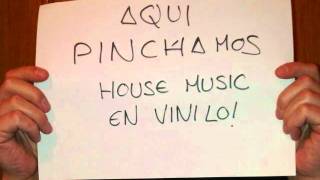 AQUI
PINCHAMOS
HOUSE MUSIC
EN VINILO!